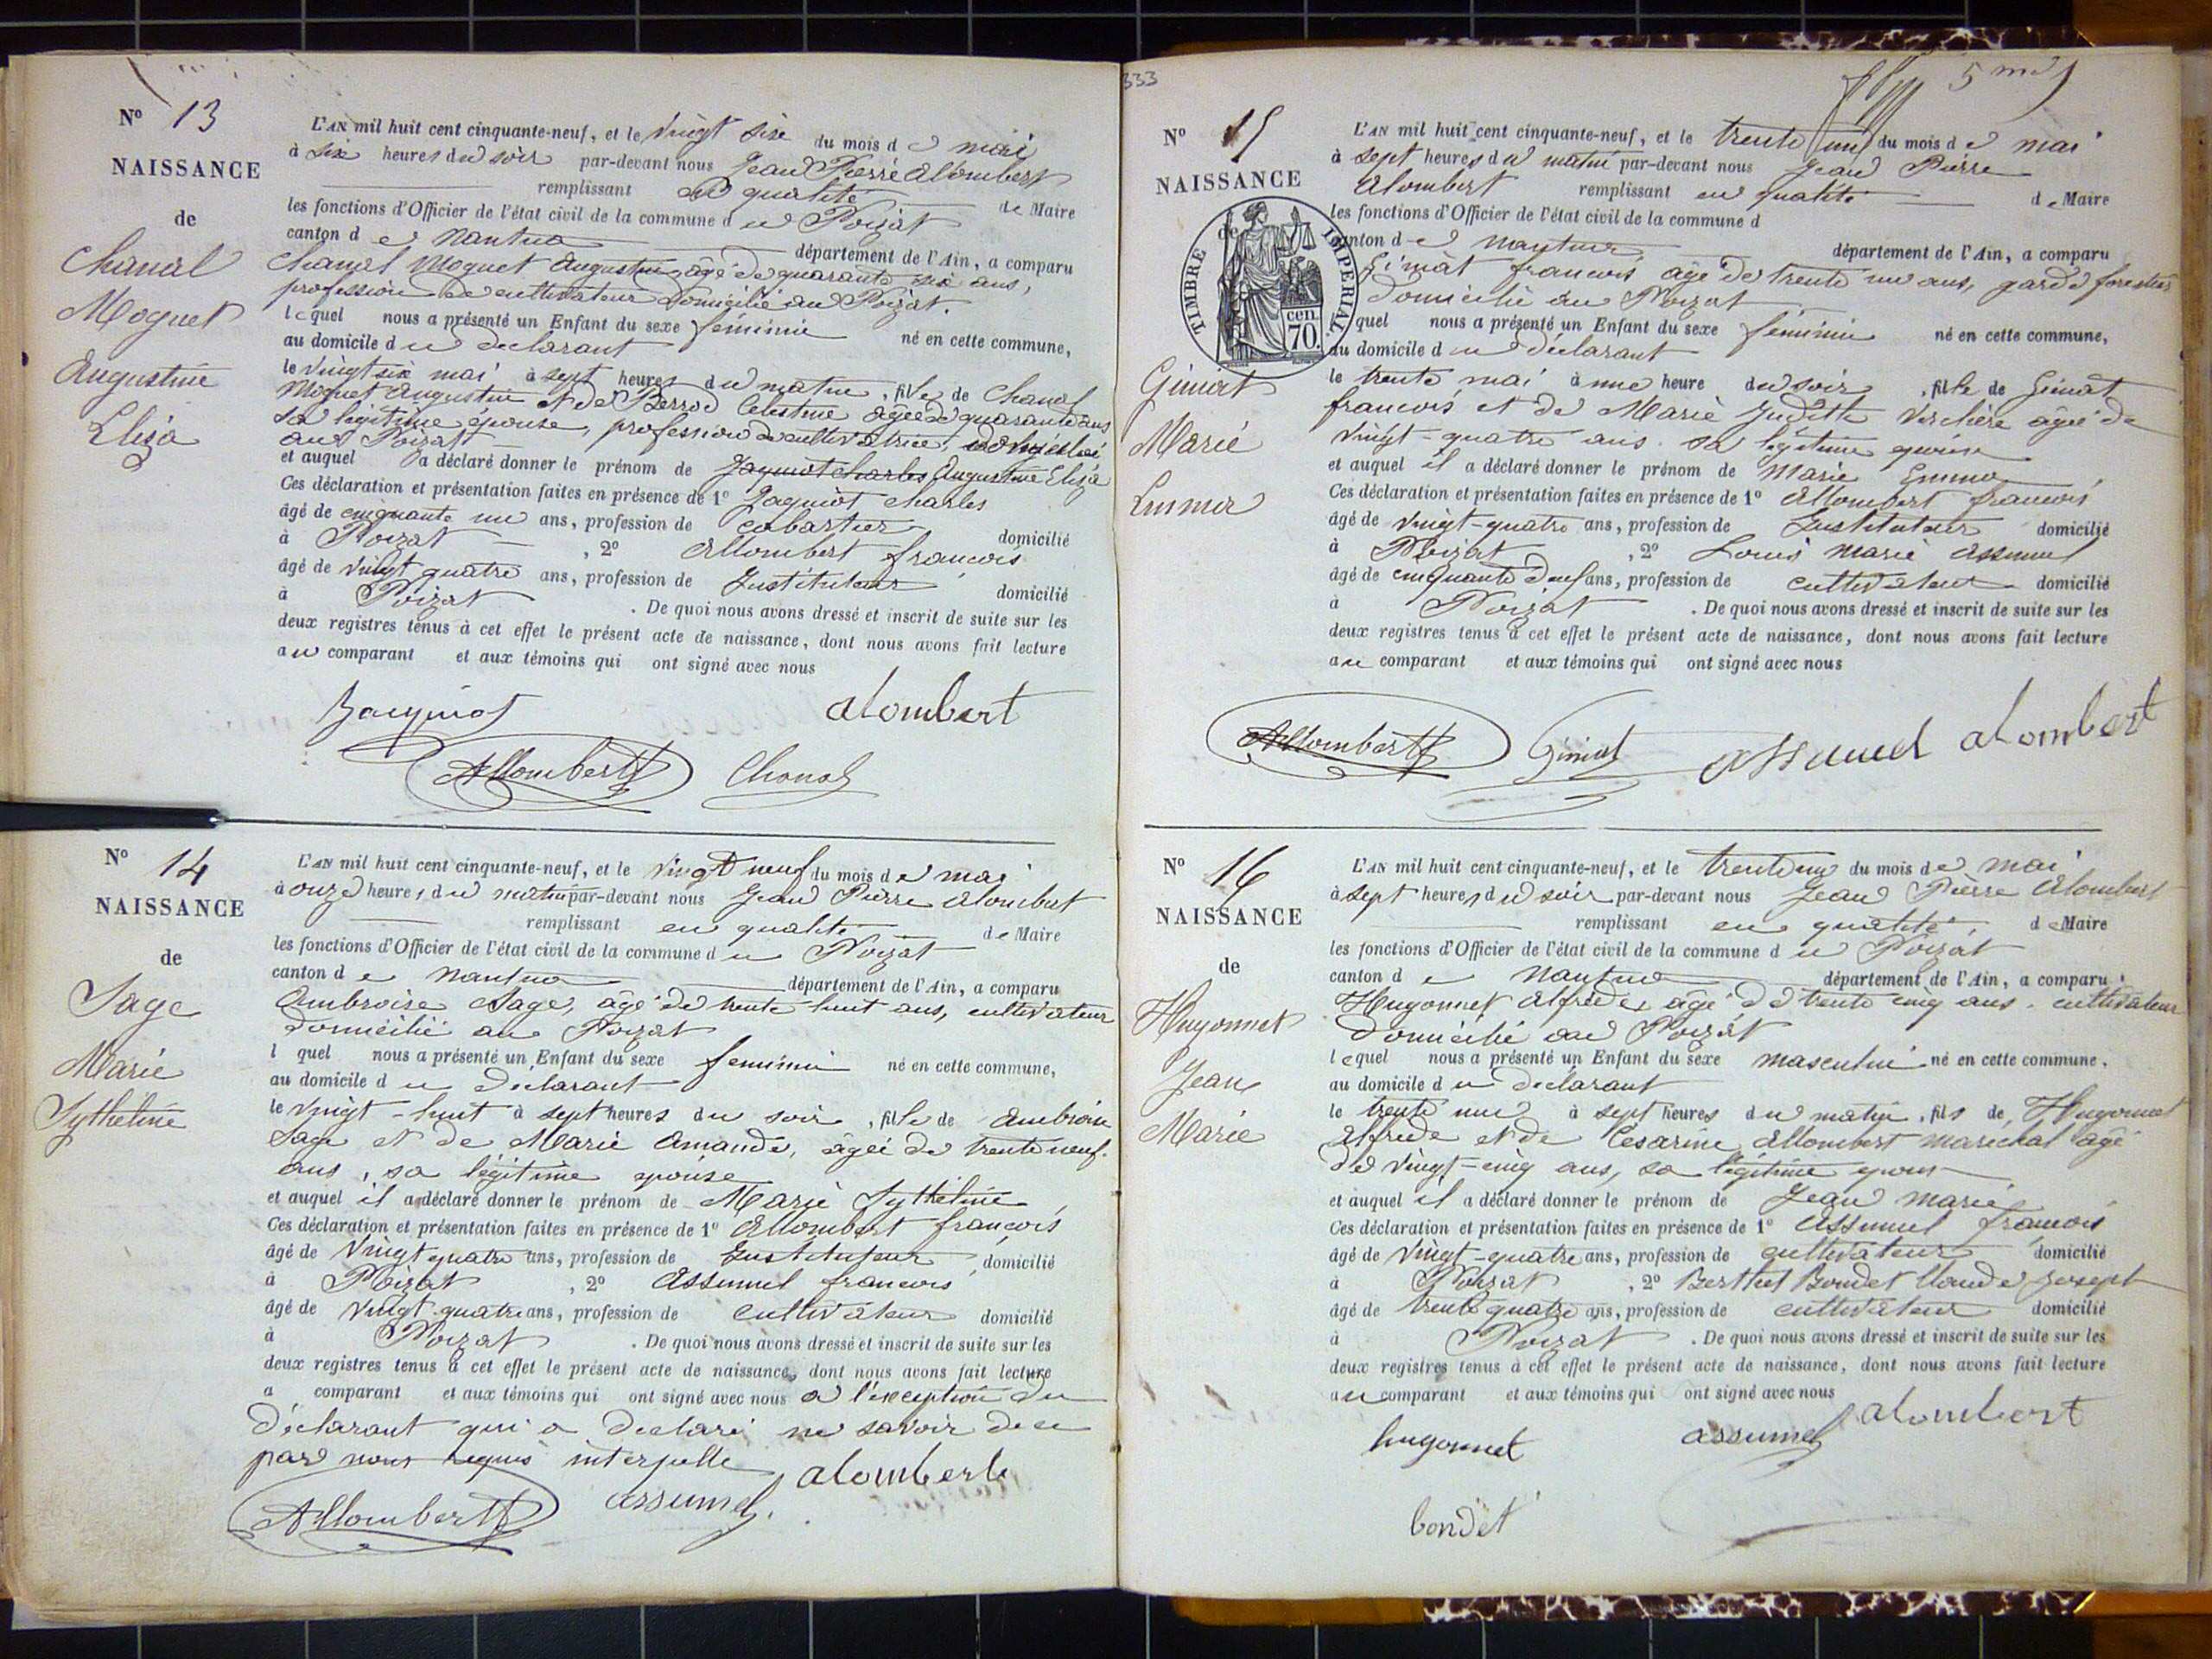 N° 13
NAISSANCE
de
Chanal
Moguet
Augustine
Eliza
L'AN mil huit cent cinquante-neuf, et le vingt six du mois de mai
à six heures du soir par-devant nous Jean Pierre Alombert
remplissant en qualité de Maire
les fonctions d'Officier de l'état civil de la commune du Poizat
canton de Nantua département de l'Ain, a comparu
Chanal Moguet Augustin âgé de quarante six ans,
profession de cultivateur domicilié au Poizat.
lequel nous a présenté un Enfant du sexe féminin né en cette commune,
au domicile du déclarant
le vingt six mai à sept heures du matin, fille de Chanal
Moguet Augustin et de Berrod Celestine âgée de quarante ans
sa légitime épouse, profession de cultivatrice, domiciliée
au Poizat
et auquel a déclaré donner le prénom de Jaquiot Charles Augustine Eliza
Ces déclaration et présentation faites en présence de 1° Jaquiot Charles
âgé de cinquante un ans, profession de cabartier domicilié
à Poizat, 2° Allombert francois
âgé de vingt quatre ans, profession de Instituteur domicilié
à Poizat. De quoi nous avons dressé et inscrit de suite sur les
deux registres tenus à cet effet le présent acte de naissance, dont nous avons fait lecture
au comparant et aux témoins qui ont signé avec nous
Jacquiot alombert
Allombert Chanal
N° 14
NAISSANCE
de
Sage
Marie
Sytheline
L'AN mil huit cent cinquante-neuf, et le vingt neuf du mois de mai
à onze heures du matin par-devant nous Jean Pierre Alombert
remplissant en qualité de Maire
les fonctions d'Officier de l'état civil de la commune du Poizat
canton de Nantua département de l'Ain, a comparu
Ambroise Sage, âgé de trente huit ans, cultivateur
domicilié au Poizat
l quel nous a présenté un Enfant du sexe feminin né en cette commune,
au domicile du déclarant
le vingt-huit à sept heures du soir, fille de Ambroise
Sage et de Marie Amande, âgée de trente neuf
ans, sa légitime épouse
et auquel il a déclaré donner le prénom de Marie Sytheline,
Ces déclaration et présentation faites en présence de 1° Allombert francois
âgé de vingt quatre ans, profession de Instituteur domicilié
à Poizat, 2° Assumel francois
âgé de vingt quatre ans, profession de cultivateur domicilié
à Poizat. De quoi nous avons dressé et inscrit de suite sur les
deux registres tenus à cet effet le présent acte de naissance, dont nous avons fait lecture
a comparant et aux témoins qui ont signé avec nous a l'exception du
déclarant qui a déclaré ne savoir de ce
par nous requis interpelle
Allombert assumel alombert
333
5 md
N° 15
NAISSANCE
de
TIMBRE IMPERIAL
70 cen.
Gimat
Marie
Emma
L'AN mil huit cent cinquante-neuf, et le trente un du mois de mai
à sept heures du matin par-devant nous Jean Pierre
Alombert remplissant en qualité de Maire
les fonctions d'Officier de l'état civil de la commune d
canton de nantua département de l'Ain, a comparu
Gimat francois âgé de trente un ans, garde forestier
domicilié au Poizat
quel nous a présenté un Enfant du sexe féminin né en cette commune,
au domicile du déclarant
le trente mai à une heure du soir, fille de Gimat
francois et de Marie Judith Verchère agée de
vingt-quatre ans. sa légitime épouse
et auquel il a déclaré donner le prénom de Marie Emma,
Ces déclaration et présentation faites en présence de 1° Allombert francois
âgé de vingt-quatre ans, profession de Instituteur domicilié
à Poizat, 2° Louis Marie Assumel
âgé de cinquante deux ans, profession de cultivateur domicilié
à Poizat. De quoi nous avons dressé et inscrit de suite sur les
deux registres tenus à cet effet le présent acte de naissance, dont nous avons fait lecture
au comparant et aux témoins qui ont signé avec nous
Allombert Gimat assumel alombert
N° 16
NAISSANCE
de
Hugonnet
Jean
Marie
L'AN mil huit cent cinquante-neuf, et le trente un du mois de mai
à sept heures du soir par-devant nous Jean Pierre Alombert
remplissant en qualité de Maire
les fonctions d'Officier de l'état civil de la commune du Poizat
canton de Nantua département de l'Ain, a comparu
Hugonnet Alfrede, âgé de trente cinq ans. cultivateur
domicilié au Poizat
lequel nous a présenté un Enfant du sexe masculin né en cette commune.
au domicile du declarant
le trente un à sept heures du matin, fils de Hugonnet
Alfrede et de Cesarine Allombert marechal agé
de vingt-cinq ans, sa légitime epouse
et auquel il a déclaré donner le prénom de Jean marie,
Ces déclaration et présentation faites en présence de 1° Assumel francois
âgé de vingt-quatre ans, profession de cultivateur domicilié
à Poizat, 2° Berthet Bondet Claude Joseph
âgé de trente quatre ans, profession de cultivateur domicilié
à Poizat. De quoi nous avons dressé et inscrit de suite sur les
deux registres tenus à cet effet le présent acte de naissance, dont nous avons fait lecture
au comparant et aux témoins qui ont signé avec nous
hugonnet assumel alombert
bondet